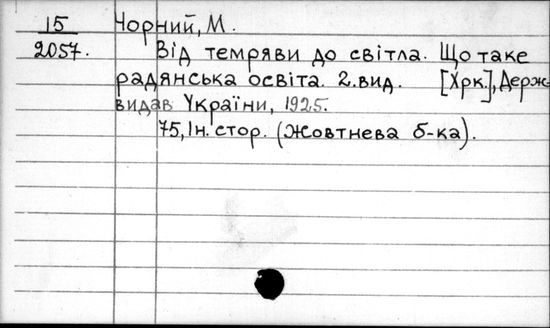 15 Чорний, М.
2057. Від темряви до світла. Що таке
радянська освіта. 2.вид. [Хрк.], Держ-
видав України, 1925.
75, Iн. стор. (Жовтнева б-ка).